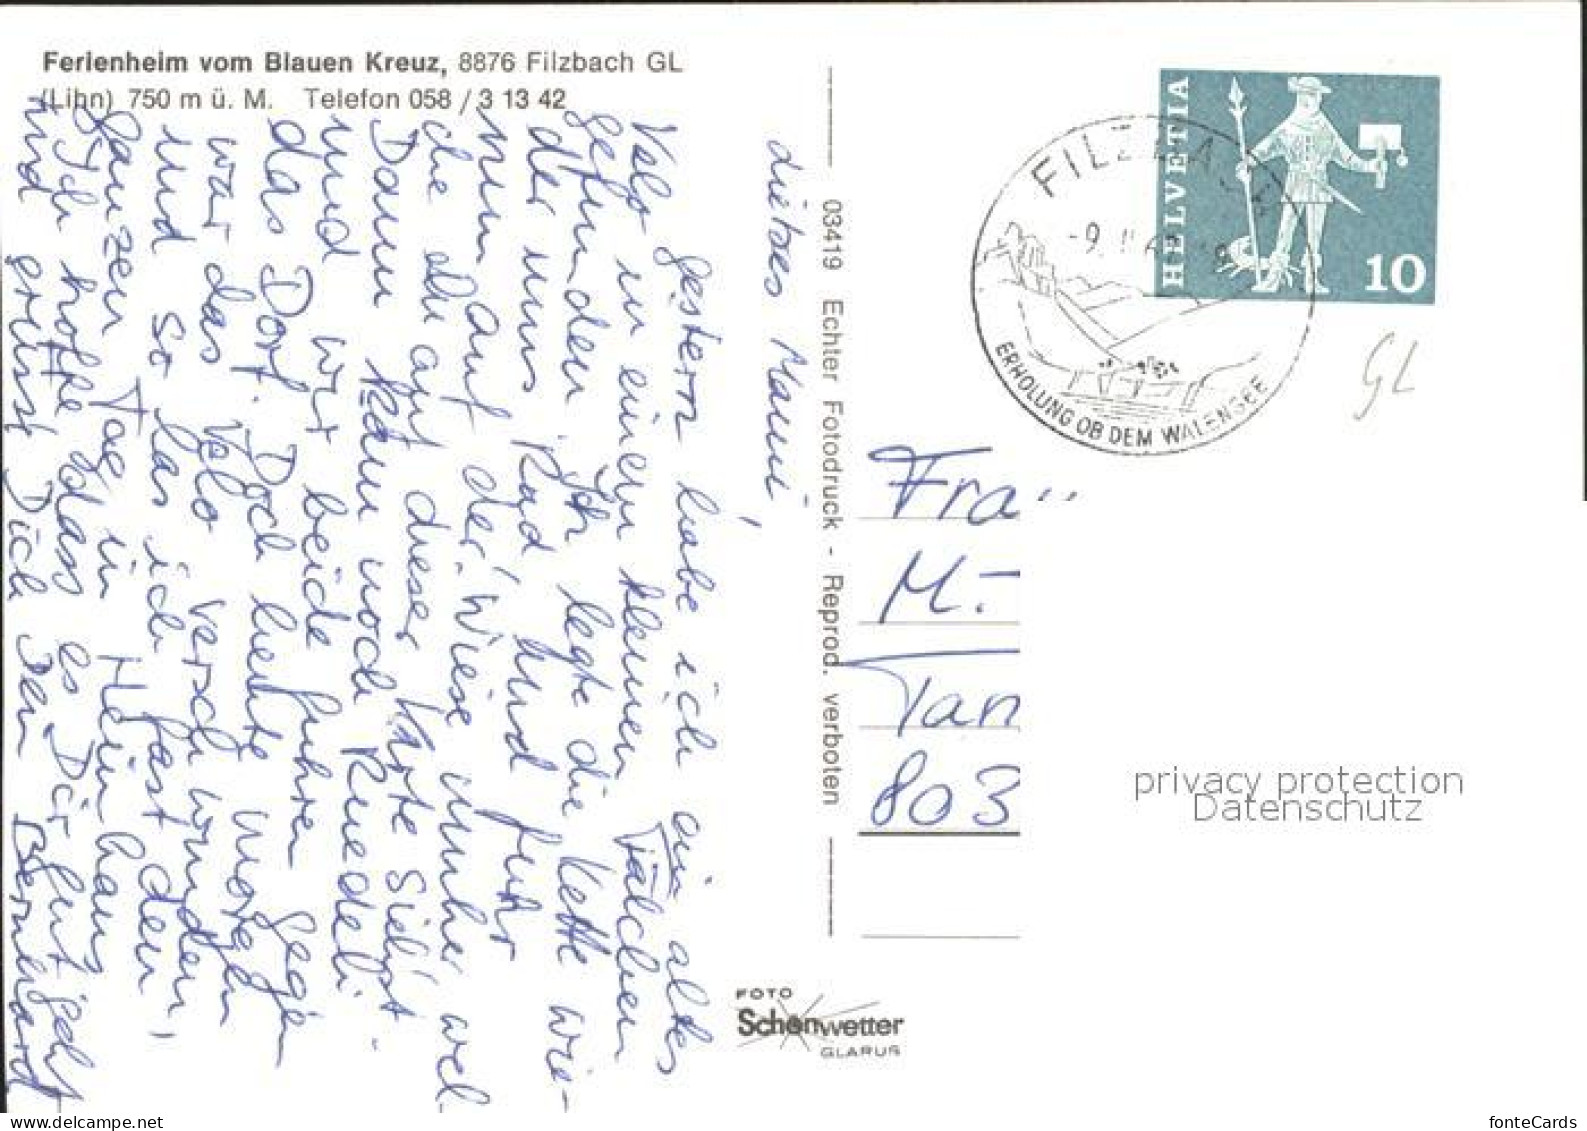 Ferienheim vom Blauen Kreuz, 8876 Filzbach GL
(Lihn) 750 m ü. M. Telefon 058 / 3 13 42
Liebes Mami,
gestern habe ich ein altes
Velo in einem kleinen Tälchen
gefunden. Ich legte die Kette wie-
der ums Rad und fuhr
nun auf der Wiese umher wel-
che du auf dieser Karte siehst.
Dann kam noch Ruedeli
und wir beide fuhren gegen
das Dorf. Doch heute morgen
war das Velo verschwunden,
und so las ich fast den
ganzen Tag in Heim
Ich hoffe dass es Dir gut geht
und grüsst Dich Dein Bernhard
03419 Echter Fotodruck - Reprod. verboten
FOTO
Schönwetter
GLARUS
HELVETIA
10
FILZBACH
-9.
ERHOLUNG OB DEM WALENSEE
GL
Fra
M.-
Tan
803
privacy protection
Datenschutz
www.delcampe.net
fonteCards